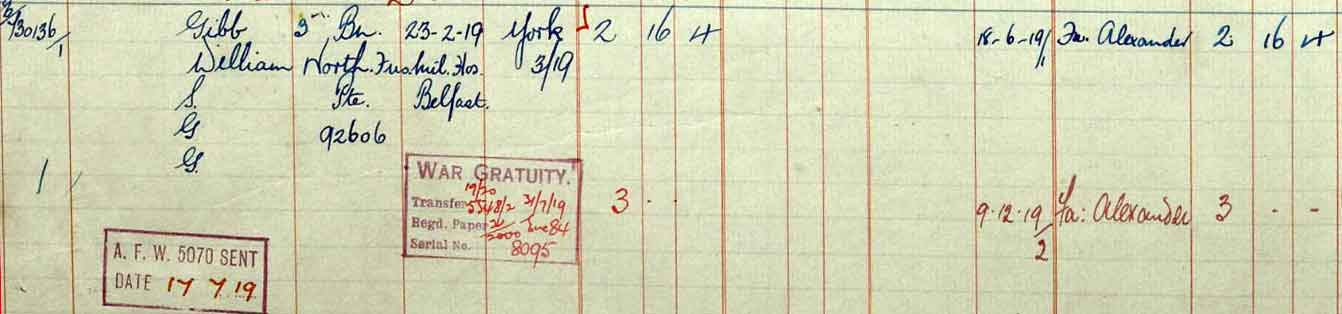 930136/1 Gibb 3rd Bn. 23-2-19 York 2 16 4 18-6-19/1 Fa: Alexander 2 16 4
William North. Fus. Mil. Hos. 3/19
S. Pte. Belfast.
G 92606
G.
1
WAR GRATUITY.
19/20
Transfer 5548/2 31/7/19
Regd. Paper 21/5000 Inc 84
Serial No. 8095
3 - - 9-12-19/2 Fa: Alexander 3 - -
A. F. W. 5070 SENT
DATE 17 7 19